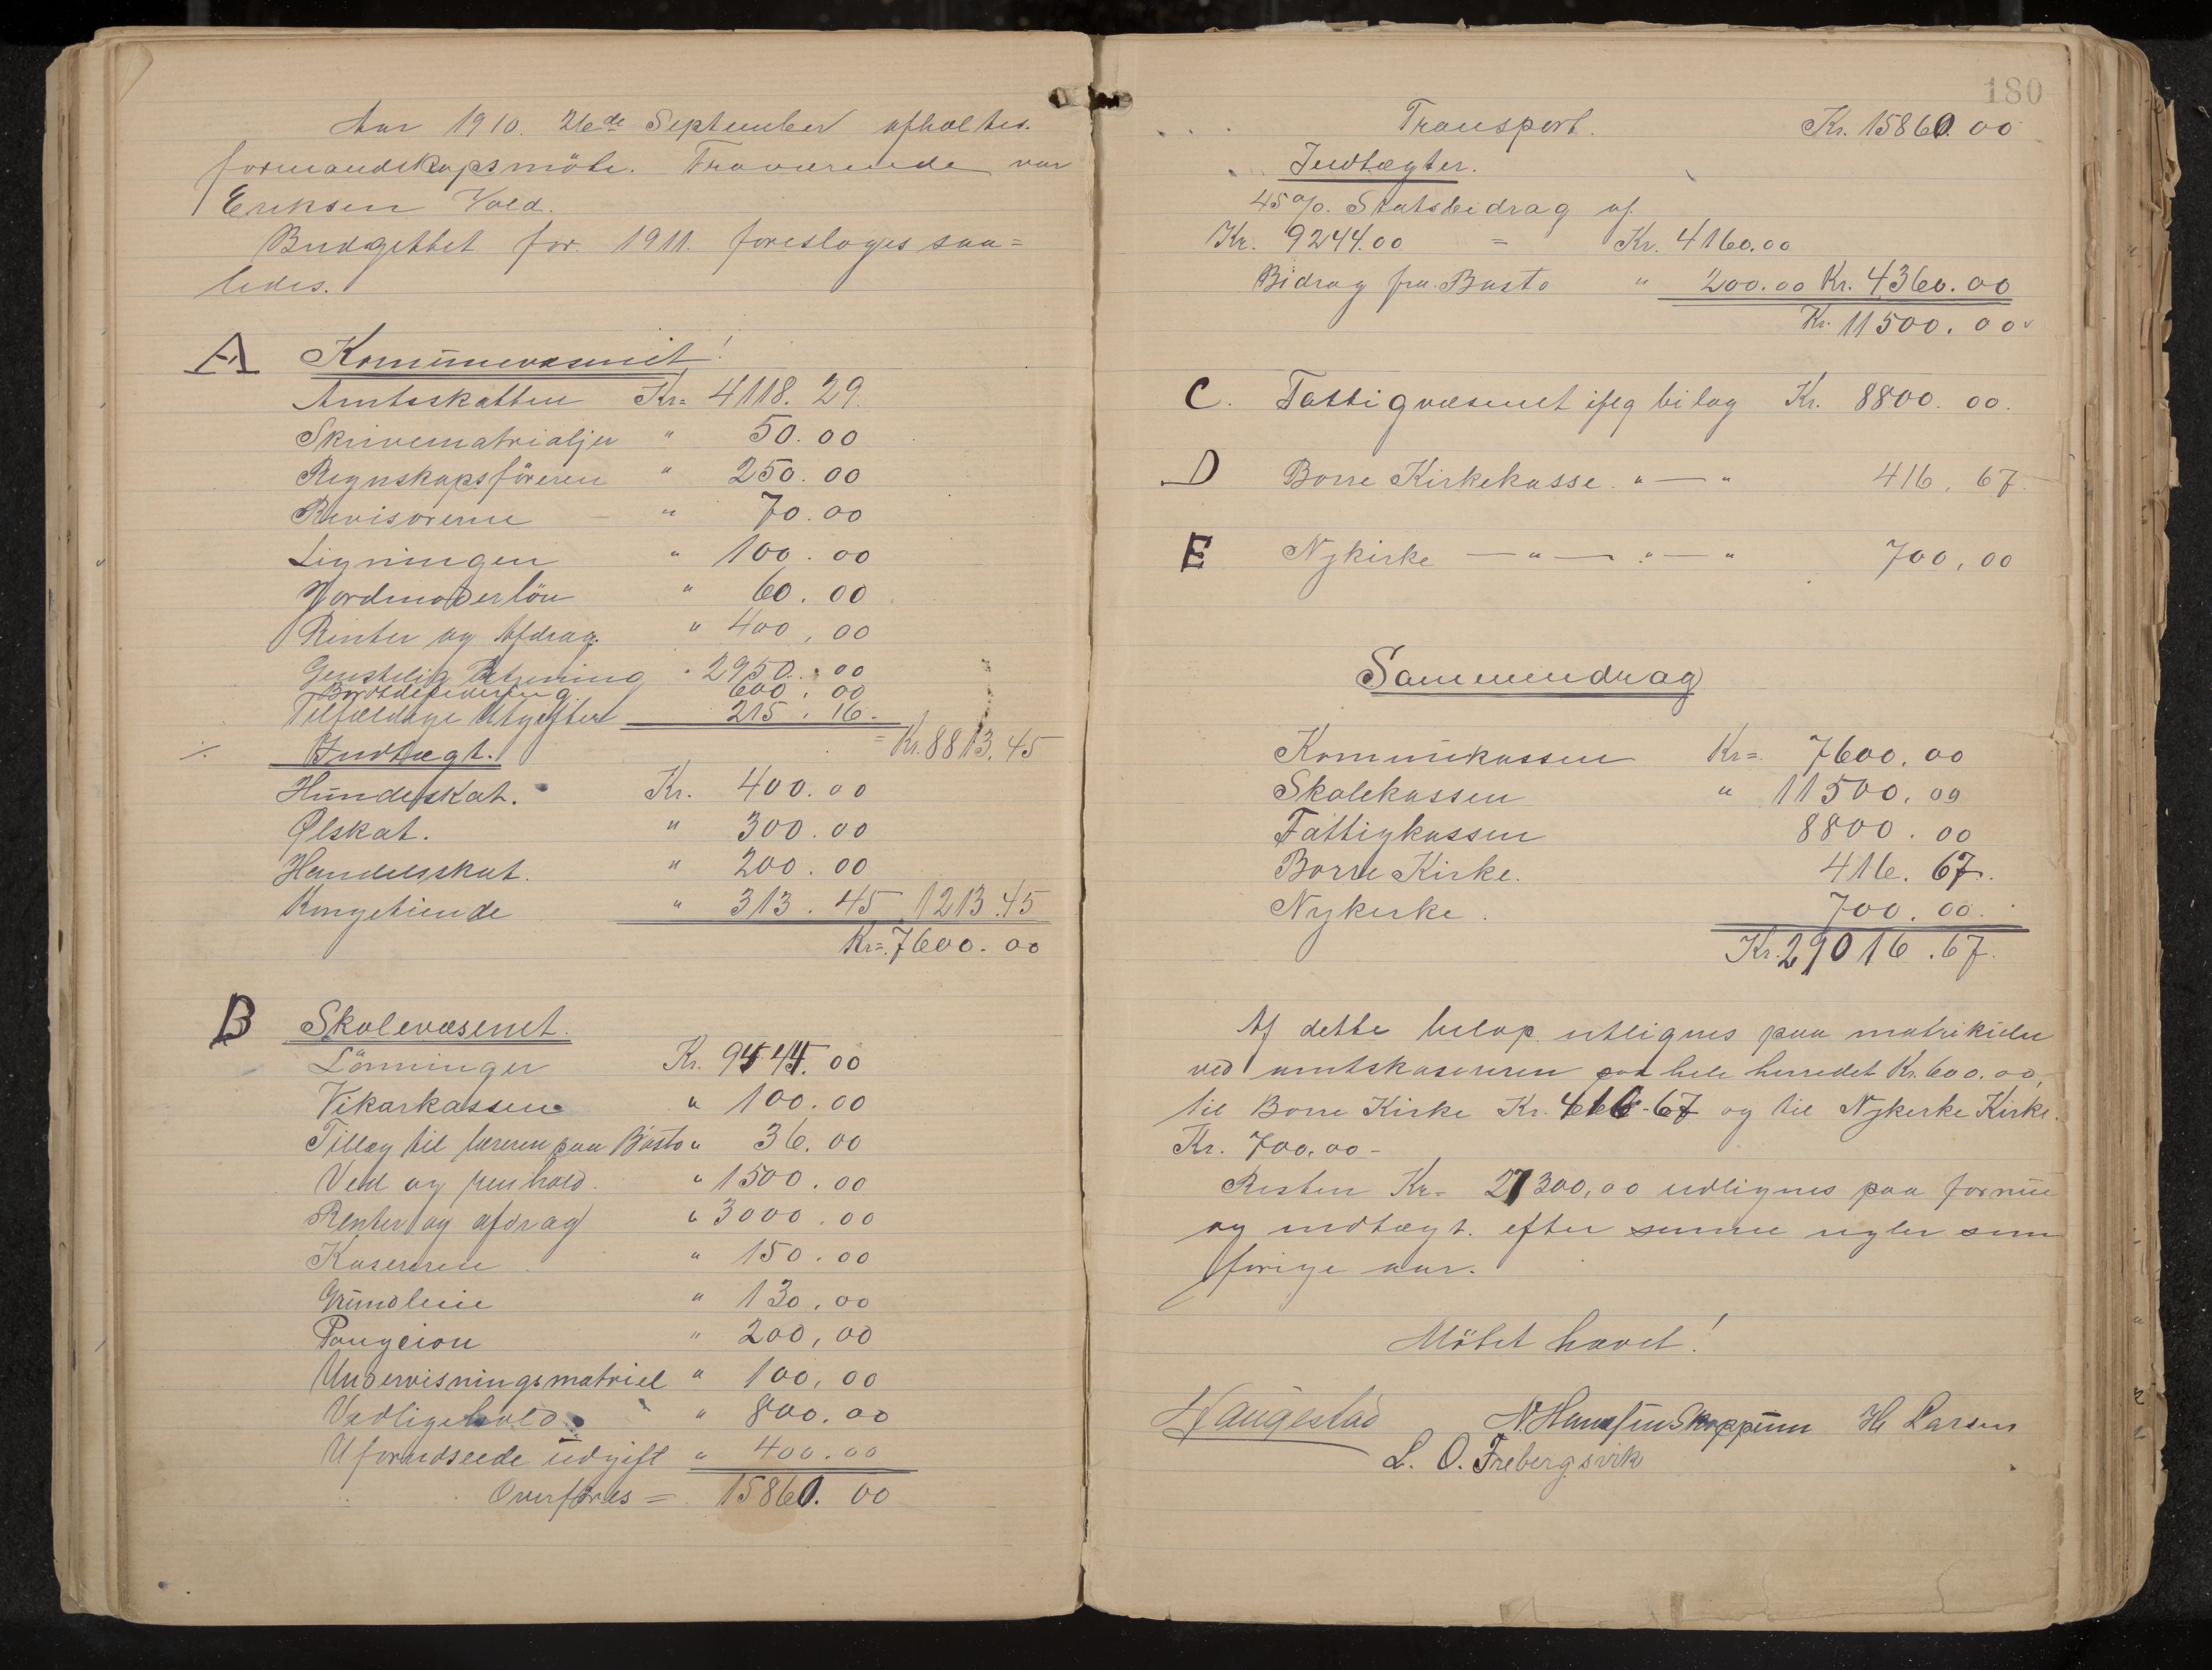 Aar 1910. 26de September afholtes
formandskapsmöte. Fraværende var
Eriksen Vold.
Budgettet for 1911. foresloges saa=
ledes.
A Kommunevæsenet!
Amtsskatten Kr= 4118. 29.
Skrivematrialjer " 50. 00
Regnskapsföreren " 250. 00
Revisorerne " 70. 00
Ligningen " 100. 00
Jordmoderlön " 60. 00
Renter og Afdrag. " 400, 00
Gensidelig 2950. 00
600. 00
Tilfældige Utgifter 215. 16.
= Kr. 8813. 45
Indtægt.
Hundeskat. Kr. 400. 00
Ølskat. " 300. 00
Handelsskat. " 200. 00
Kongetiende " 313. 45 1213. 45
Kr=. 7600. 00
B Skolevæsenet.
Lönninger Kr. 9445. 00
Vikarkassen " 100. 00
Tillæg til læreren paa Bastö " 36. 00
Ved og renhold. " 1500. 00
Renter og afdrag " 3000. 00
Kasereren " 150. 00
Grundleie " 130, 00
Pangcion " 200, 00
Undervisningsmatriel " 100, 00
Vedligehold " 800. 00
Uforudseede udgift " 400. 00
Overföres = 15860. 00
180
Transport. Kr. 15860. 00
Indtægter.
45%. Statsbidrag af.
Kr. 9244.00 = Kr. 4160.00
Bidrag fra Bastö " 200.00 Kr. 4360. 00
Kr. 11500. 00
C. Fattigvæsenet ifлg bilag Kr. 8800. 00.
D Borre Kirkekasse. " — " 416, 67.
E Nykirke — " — " — " 700, 00
Sammendrag
Kommunekassen Kr=. 7600, 00
Skolekassen " 11500, 00
Fattigkassen 8800. 00
Borre Kirke. 416. 67.
Nykirke. 700. 00.
Kr. 29016. 67.
Af dette belöp utlignes paa matrikulen
ved amtskasereren paa hele herredet Kr. 600.00,
til Borre Kirke Kr. 416-67 og til Nykirke Kirke.
Kr. 700,00-
Resten Kr= 27300,00 udlignes paa formue
og indtægt. efter samme regler som
forrige aar.
Mötet hævet!
Haugestad N. Hansen Skoppum H Larsen
L. O. Frebergsvik